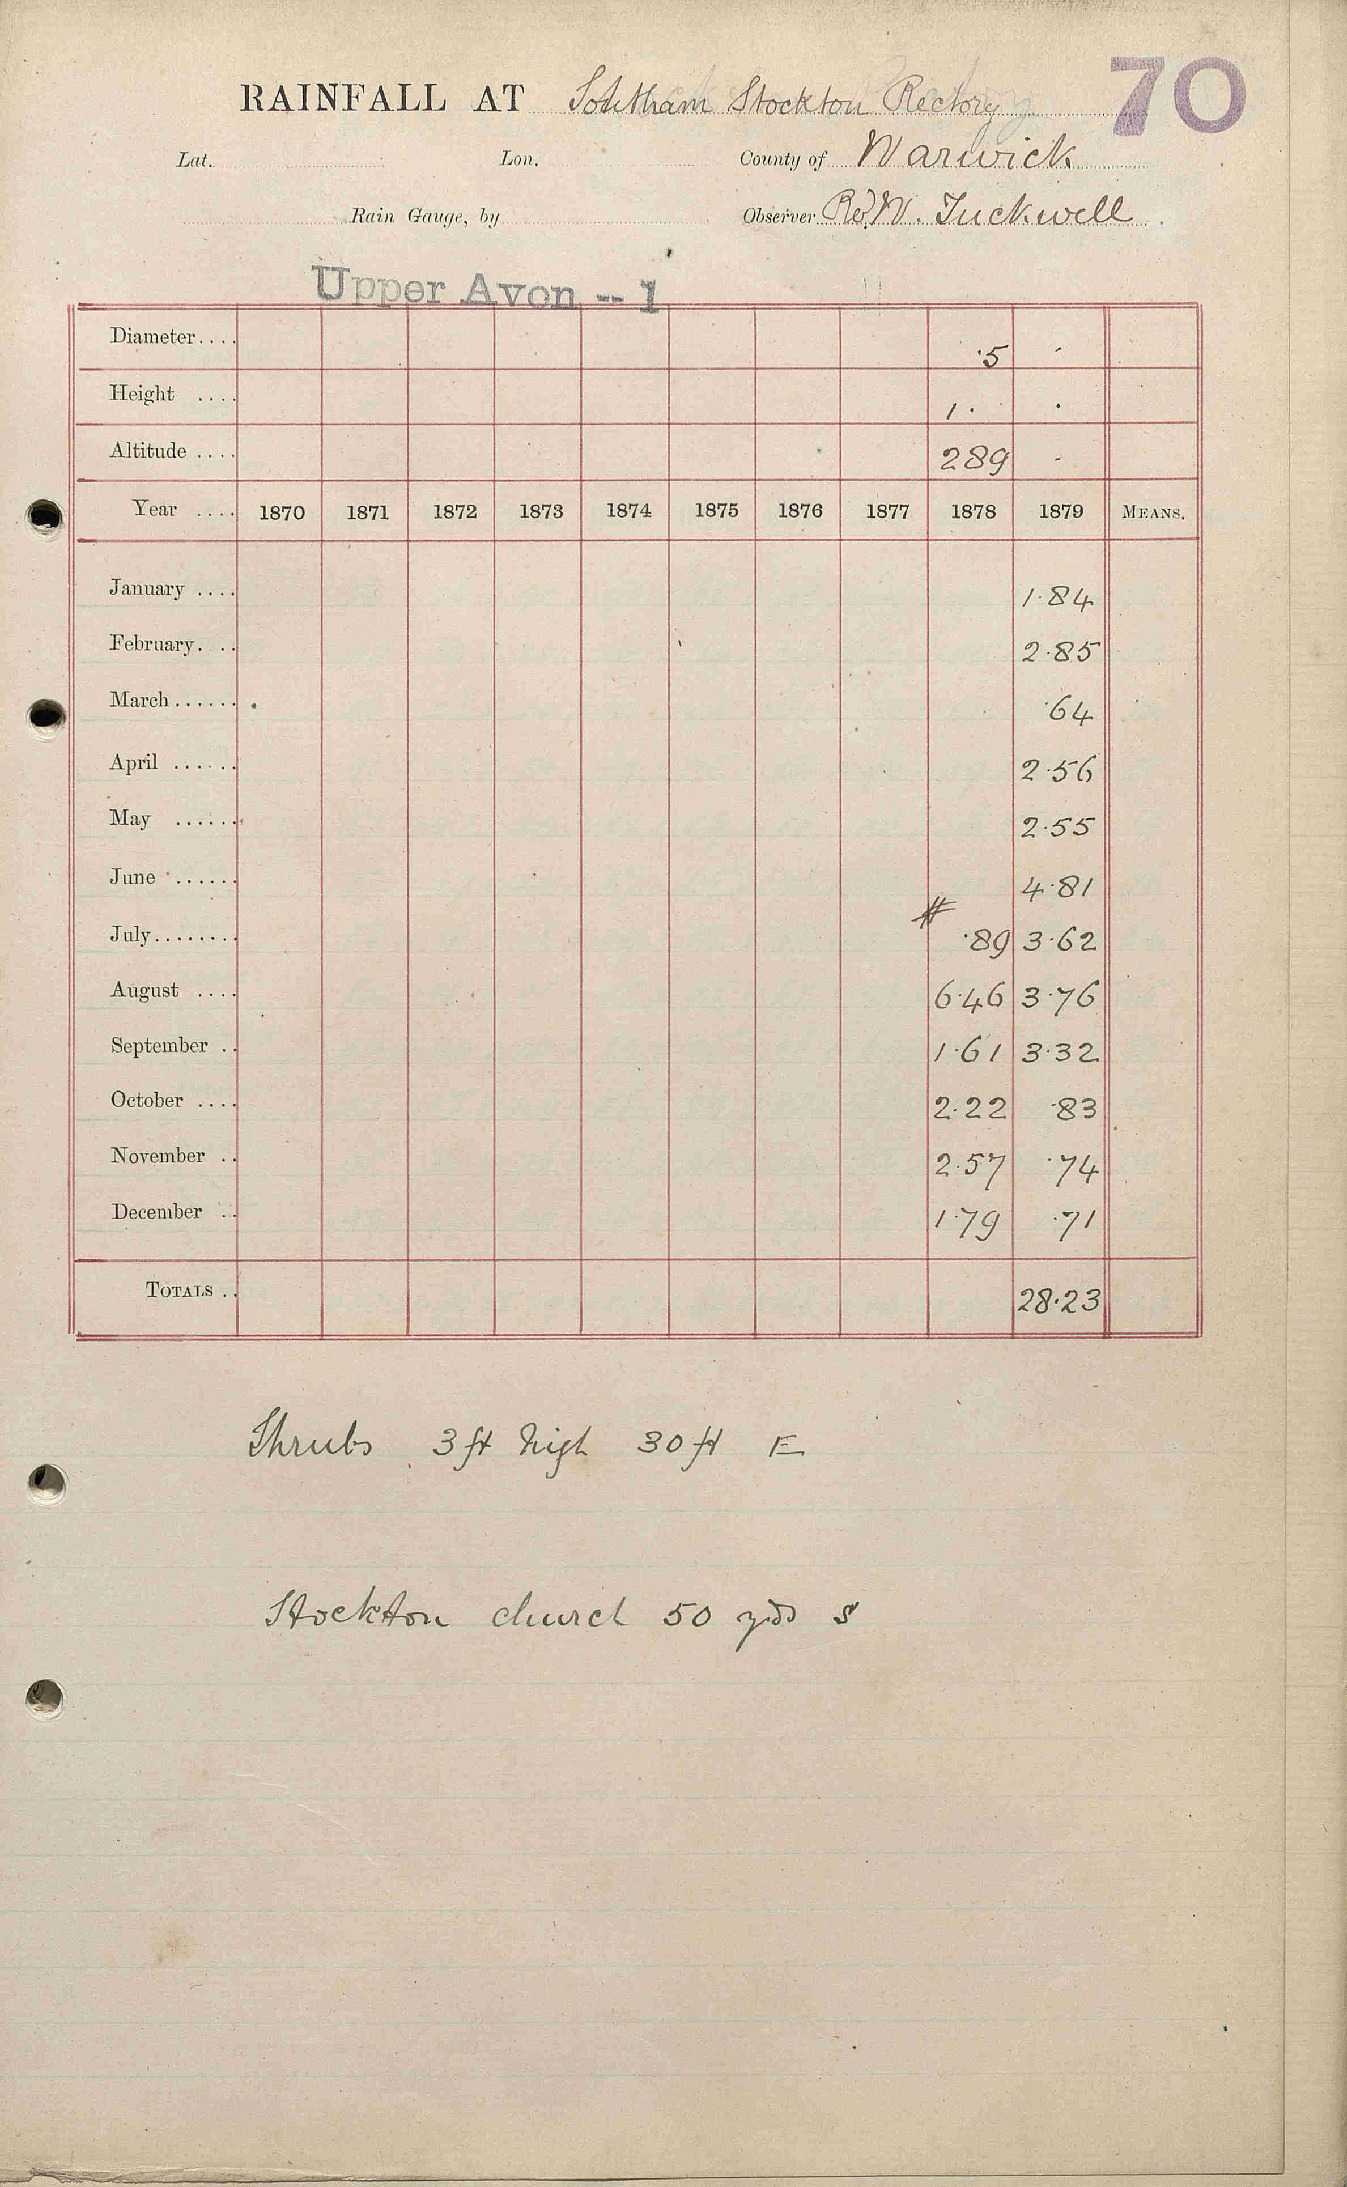 70
RAINFALL AT Southam Stockton Rectory
Lat. Lon. County of Warwick
Rain Gauge, by Observer Rev. W. Tuckwell
Upper Avon -- 1
Diameter.... ·5 ·
Height .... 1· ·
Altitude .... 289 ·
Year .... 1870 1871 1872 1873 1874 1875 1876 1877 1878 1879 MEANS.
January .... 1·84
February.... 2·85
March...... ·64
April ...... 2·56
May ...... 2·55
June ...... 4·81
#
July........ ·89 3·62
August .... 6·46 3·76
September .. 1·61 3·32
October .... 2·22 ·83
November .. 2·57 ·74
December .. 1·79 ·71
TOTALS .. 28·23
Shrubs 3 ft high 30 ft E
Stockton church 50 yds S